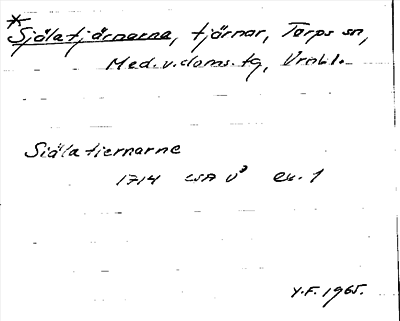 *
Själatjärnarne, tjärnar, Torps sn,
Med. v. doms. tg, Vrml.
Siälatiernarne
1714 LSA V³ ex. 1
Y.F. 1965.